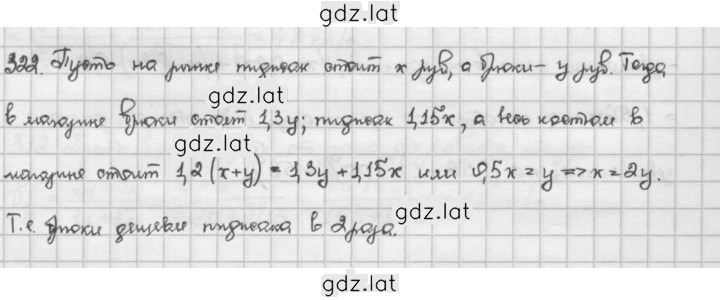 gdz.lat
322. Пусть на рынке пиджак стоит x руб, а брюки – y руб. Тогда
gdz.lat
в магазине брюки стоят 1,3y; пиджак 1,15x, а весь костюм в
gdz.lat
магазине стоит 1,2(x+y) = 1,3y + 1,15x или 0,5x = y => x = 2y.
gdz.lat
Т.е. брюки дешевле пиджака в 2 раза.
gdz.lat